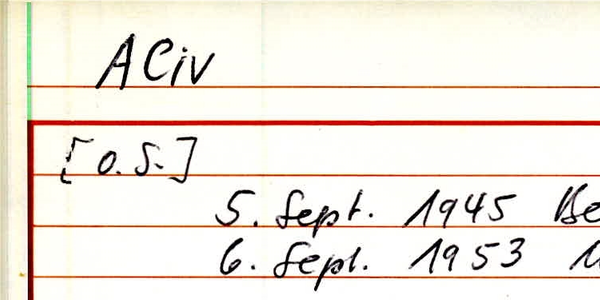 ACiv
[o.S.]
5. Sept. 1945 Be
6. Sept. 1953